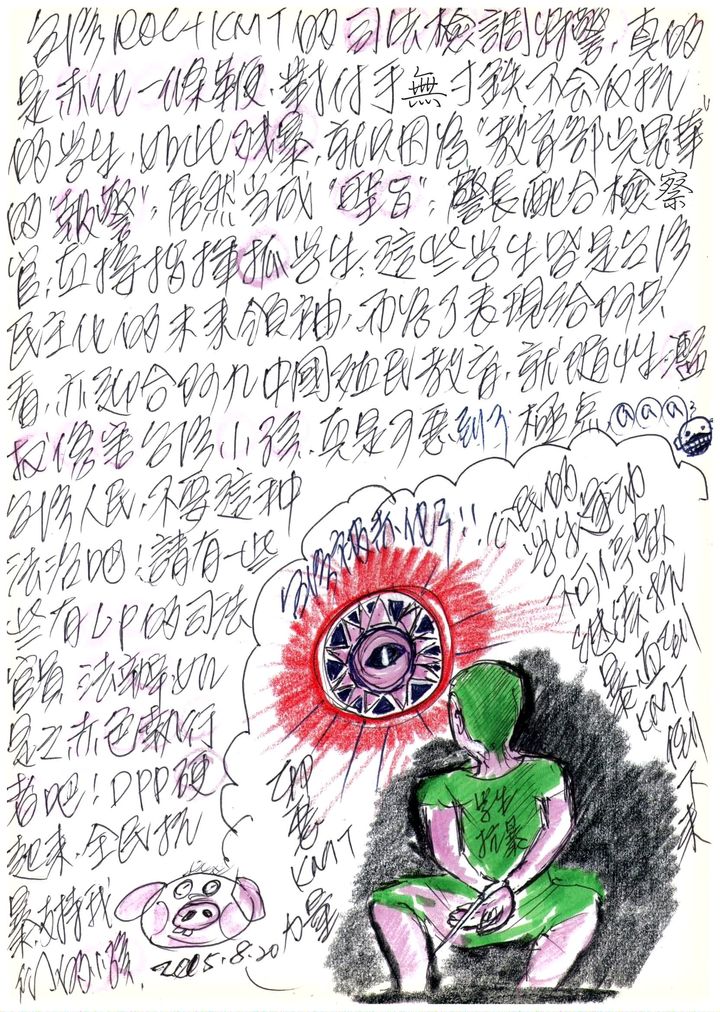 台湾ROC+KMT的司法檢調特警,真的
是赤化一條鞭,對付手無寸鉄不会反抗
的学生,如此残暴,就只因為"教育部吳思華"
的"報警",居然当成"聖旨",警長配合檢察
官,直接指揮抓学生,這些学生皆是台湾
民主化的未來領袖,而為了表現給阿共
看,亦迎合阿九中國殖民教育,就
傷害台湾小孩,真是可惡到了極点,
台湾人民,不要這種
法治吧!請有一些
些有LP的司法
官員,
是之赤色執行
者吧!DPP硬
起來,全民抗
暴,支持我
們的小孩.
台湾被赤化了!!
公民的
学生運動
繼續抗
暴直到
KMT
倒下來
邪惡
KMT
力量
学生
抗暴
2015.8.20